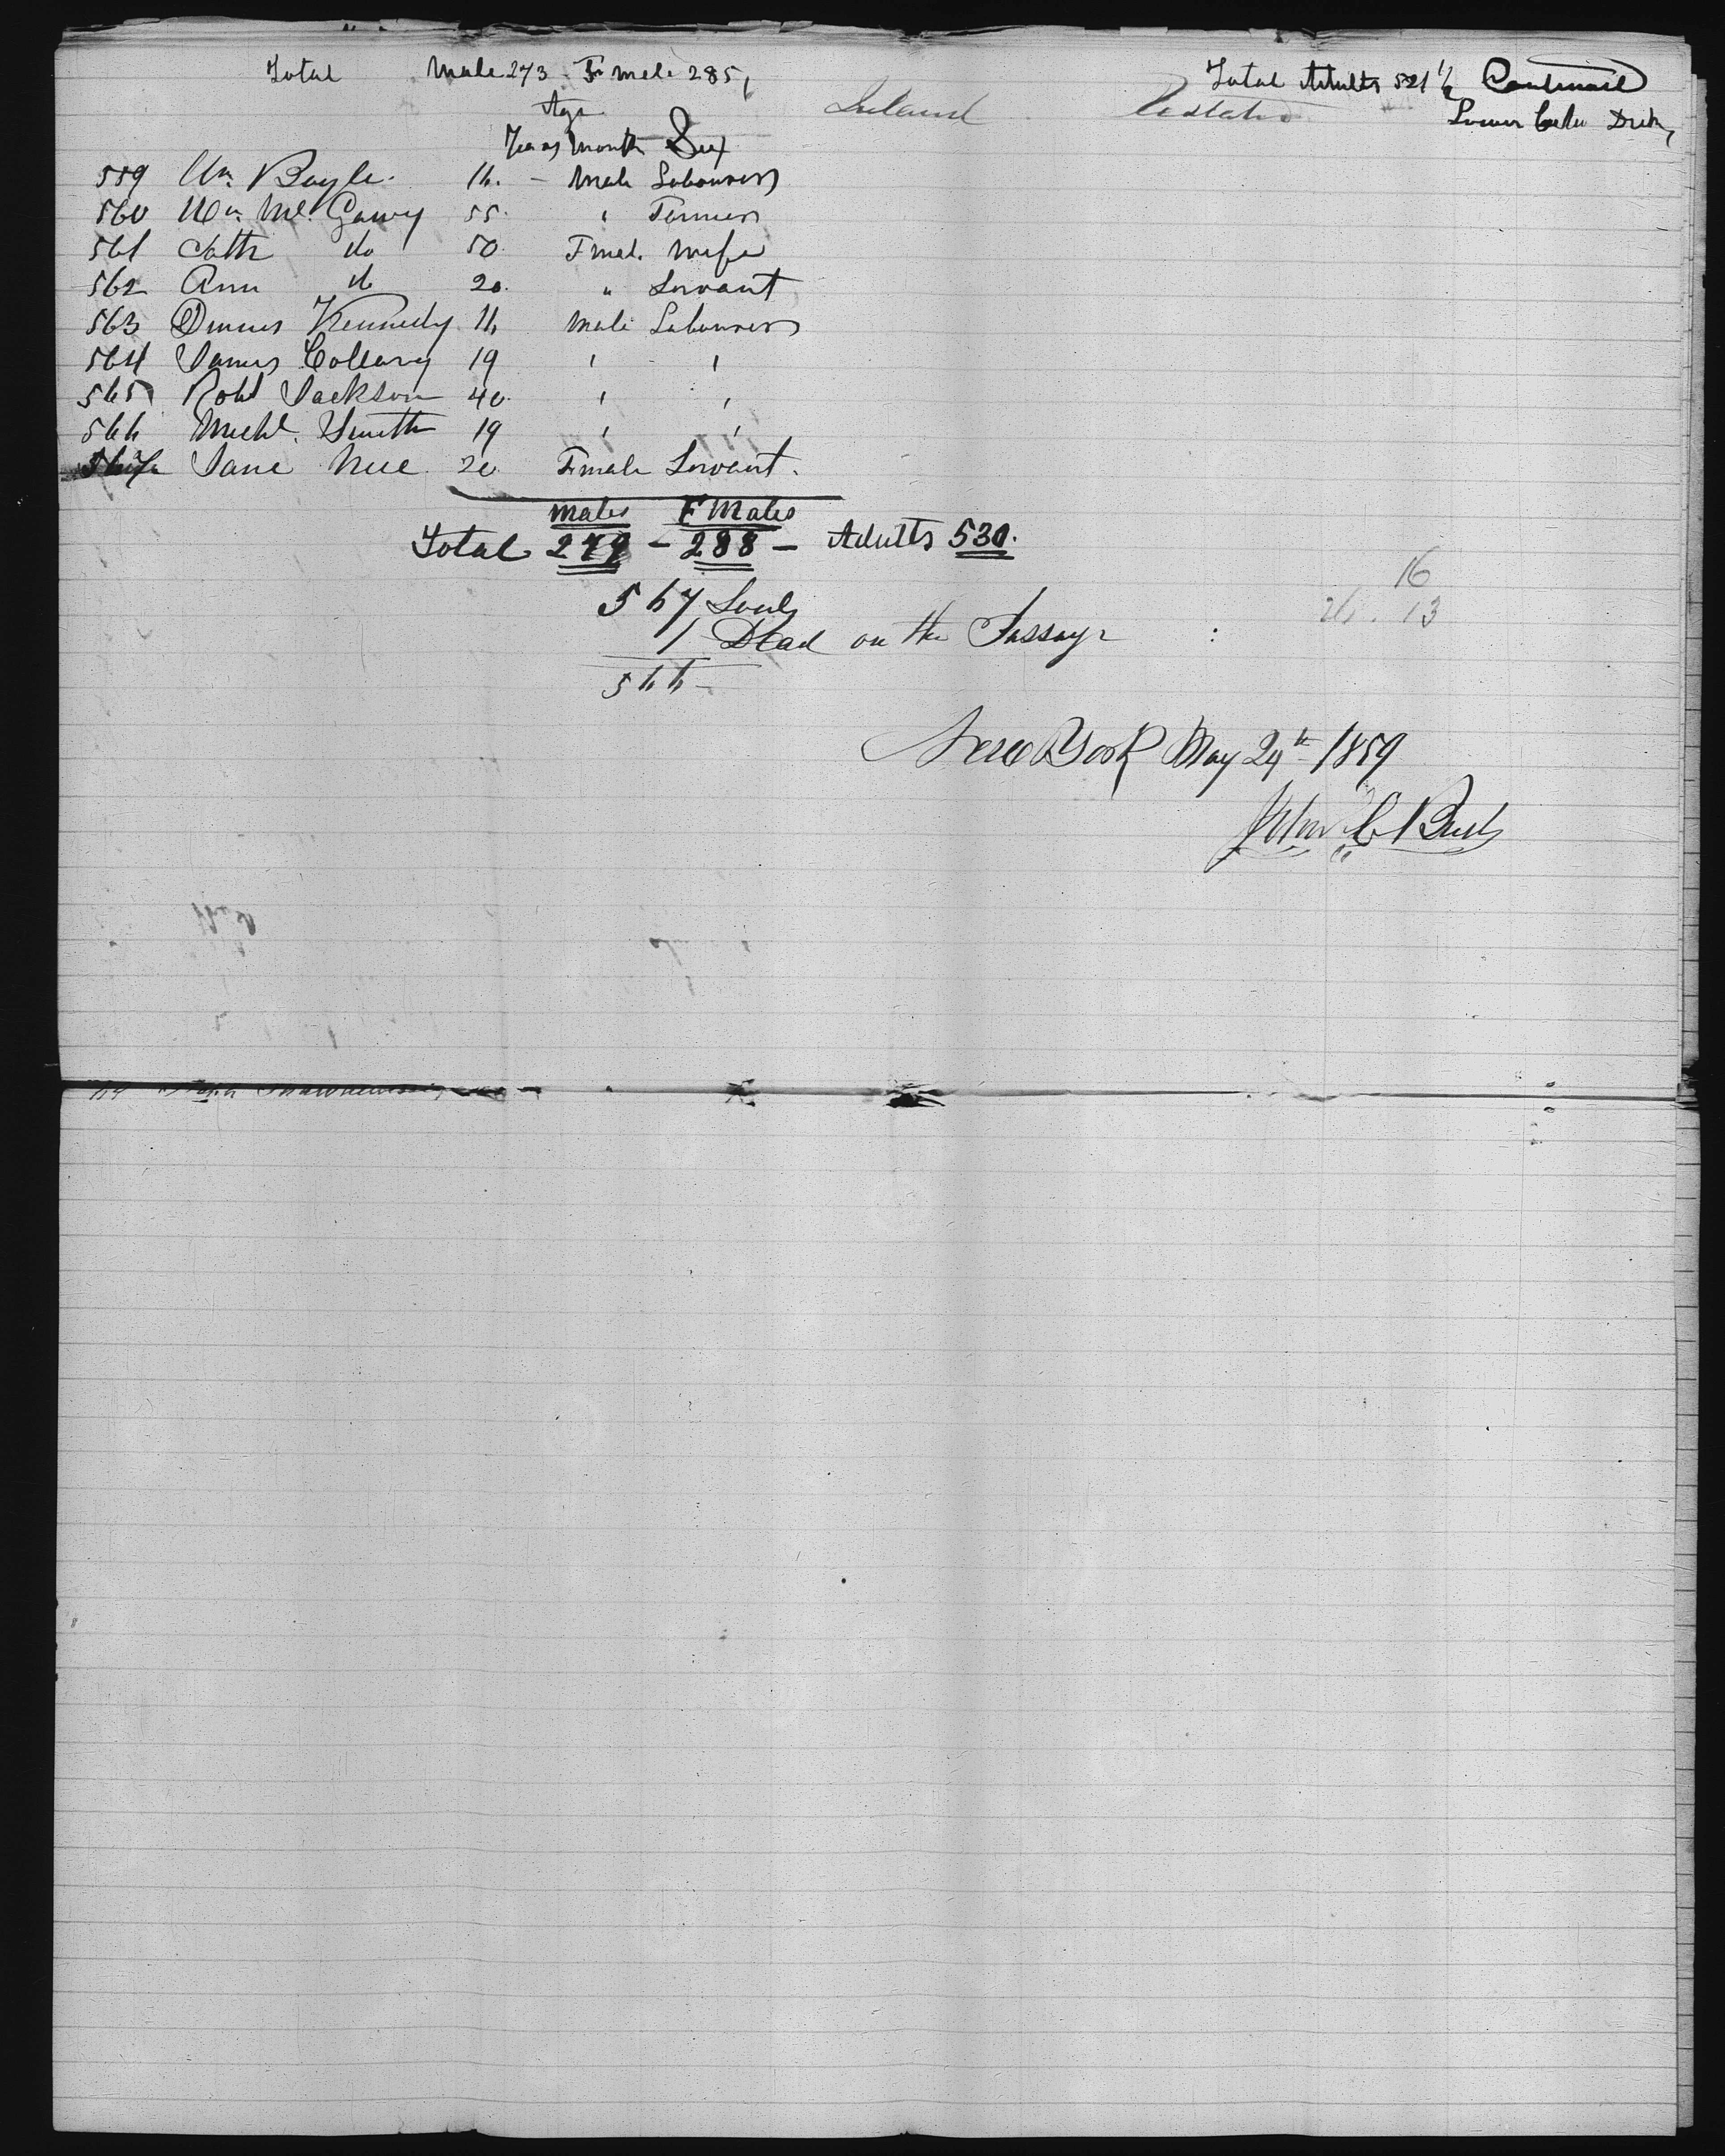 Total Male 273 - Fmale 285, Total Adults 521 1/2 Continued
Age Ireland U States Lower Deck
Years Month Sex
559 Wm Boyle. 16. - Male Labourers
560 Wm Mc.Garvy 55. " Farmers
561 Cath do 50. Fmal. Wife
562 Ann do 20. " Servant
563 Dennis Kennedy 16 Male Labourers
564 James Colleary 19 " "
565 Robt Jackson 40. " "
566 Michl. Smith 19 " "
567 Jane Nee 20. Fmale Servant.
Males FMales
Total 279 - 288 - Adults 530.
567 Souls
1 Dead on the Passage
566
16
26. 13
New York May 24th 1859
John C Bush